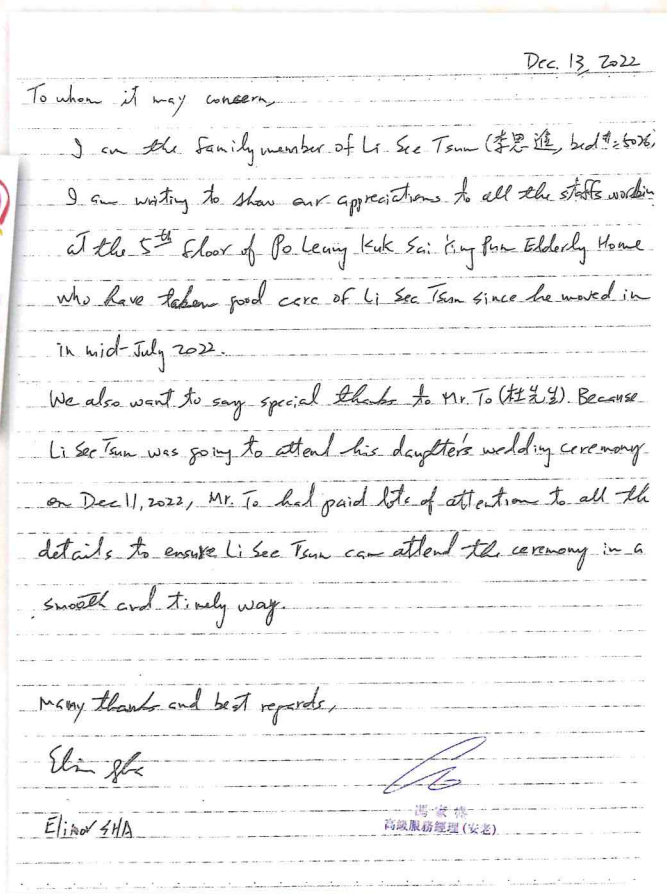 Dec. 13, 2022
To whom it may concern,
I am the family member of Li See Tsun (李思進, bed#: 5026,
I am writing to show our appreciations to all the staffs workin
at the 5th floor of Po Leung Kuk Sai Ying Pun Elderly Home
who have taken good care of Li See Tsun since he moved in
in mid-July 2022.
We also want to say special thanks to Mr. To (杜先生). Because
Li See Tsun was going to attend his daughter's wedding ceremony
on Dec 11, 2022, Mr. To had paid lots of attention to all the
details to ensure Li See Tsun can attend the ceremony in a
smooth and timely way.
Many thanks and best regards,
Elinor SHA
高級服務經理(安老)